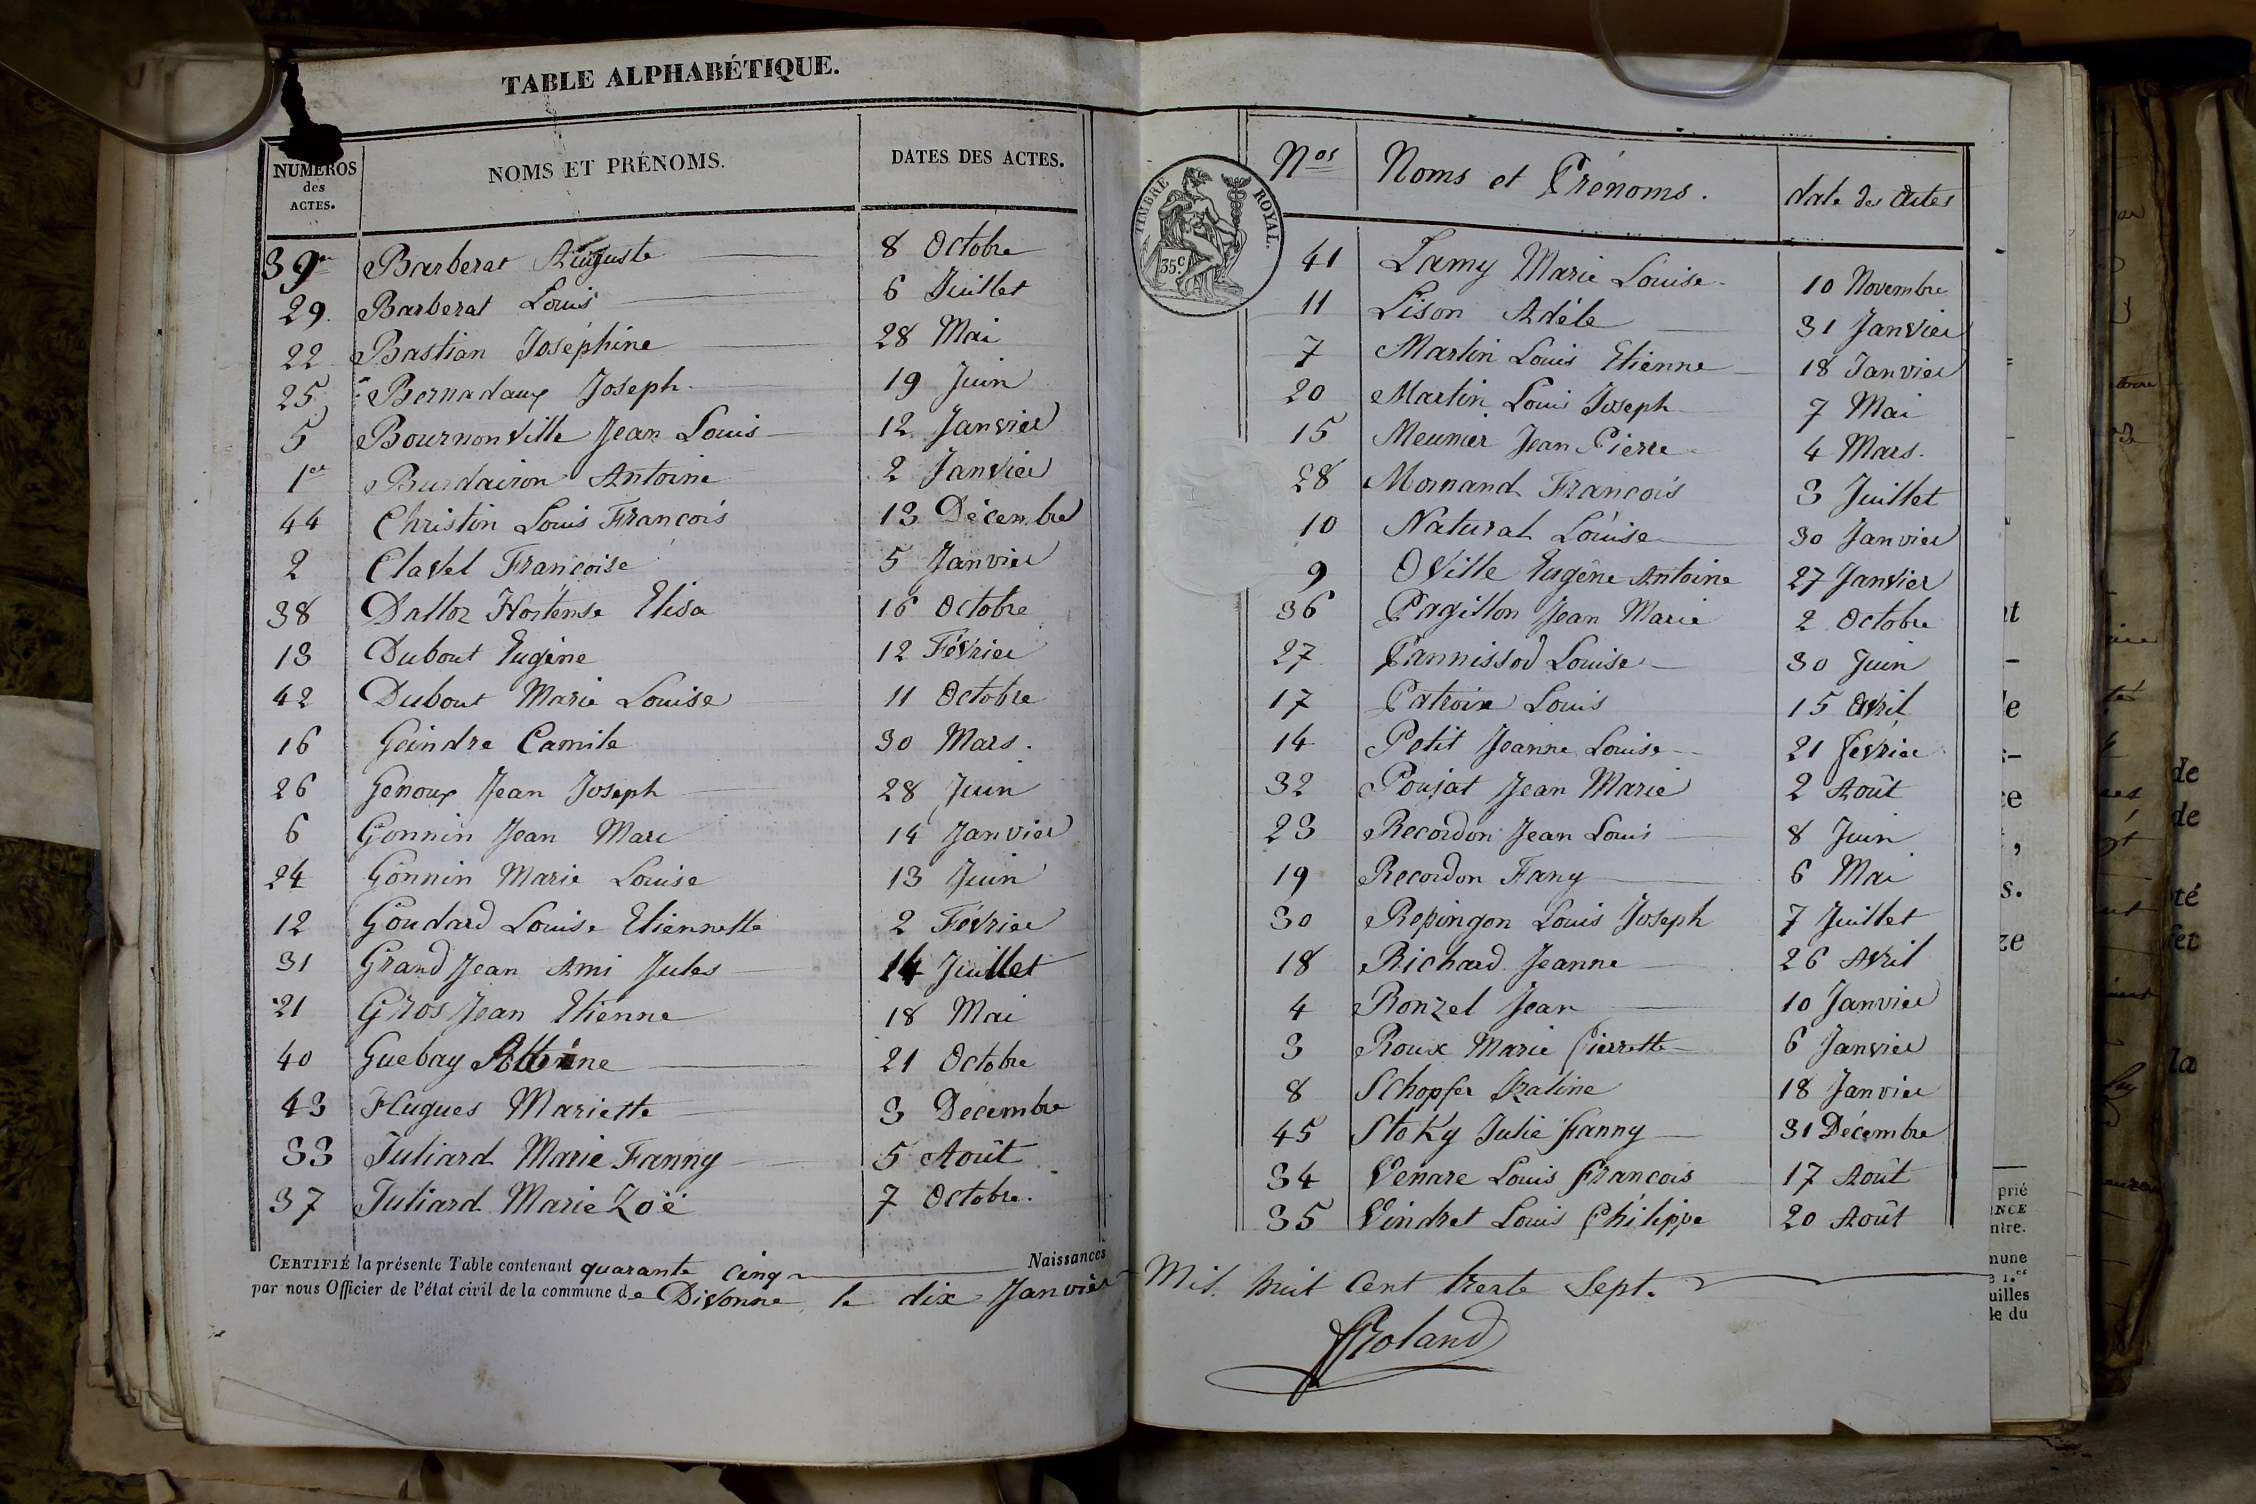 TABLE ALPHABÉTIQUE.
NUMÉROS des ACTES. NOMS ET PRÉNOMS. DATES DES ACTES.
39 Barberat Auguste 8 Octobre
29. Barberat Louis 6 Juillet
22 Bastian Joséphine 28 Mai
25 Bernadaux Joseph. 19 Juin
5 Bournonville Jean Louis 12 Janvier
1er Burdairon Antoine 2 Janvier
44 Christin Louis François 13 Décembre
2 Clavel Françoise 5 Janvier
38 Dalloz Hortense Elisa 16 Octobre
13 Dubout Eugène 12 Février
42 Dubout Marie Louise 11 Octobre
16 Geindre Camile 30 Mars.
26 Genoux Jean Joseph 28 Juin
6 Gonnin Jean Marc 14 Janvier
24 Gonnin Marie Louise 13 Juin
12 Goudard Louise Etiennette 2 Février
31 Grand Jean Ami Jules 14 Juillet
21 Gros Jean Etienne 18 Mai
40 Guebay 21 Octobre
43 Hugues Mariette 3 Décembre
33 Juliard Marie Fanny 5 Août
37 Juliard Marie Zoë 7 Octobre.
CERTIFIÉ la présente Table contenant quarante cinq Naissances
par nous Officier de l'état civil de la commune de Divonne, le dix Janvier
TIMBRE ROYAL.
35c.
Nos Noms et Prénoms. date des actes
41 Lamy Marie Louise 10 Novembre
11 Lison Adéle 31 Janvier
7 Martin Louis Etienne 18 Janvier
20 Martin Louis Joseph 7 Mai
15 Meunier Jean Pierre 4 Mars.
28 Mornand François 3 Juillet
10 Natural Louise 30 Janvier
9 Oville Eugène Antoine 27 Janvier
36 Pagillon Jean Marie 2 Octobre
27 Pannissod Louise 30 Juin
17 Patroix Louis 15 Avril
14 Petit Jeanne Louise 21 février
32 Poujat Jean Marie 2 Août
23 Recordon Jean Louis 8 Juin
19 Recordon Fany 6 Mai
30 Repingon Louis Joseph 7 Juillet
18 Richard Jeanne 26 Avril
4 Ronzel Jean 10 Janvier
3 Roux Marie Pierrette 6 Janvier
8 Schopfer 18 Janvier
45 Stoky Julie Fanny 31 Décembre
34 Venare Louis François 17 Août
35 Vindret Louis Philippe 20 Août
Mil huit Cent trente Sept.
Roland